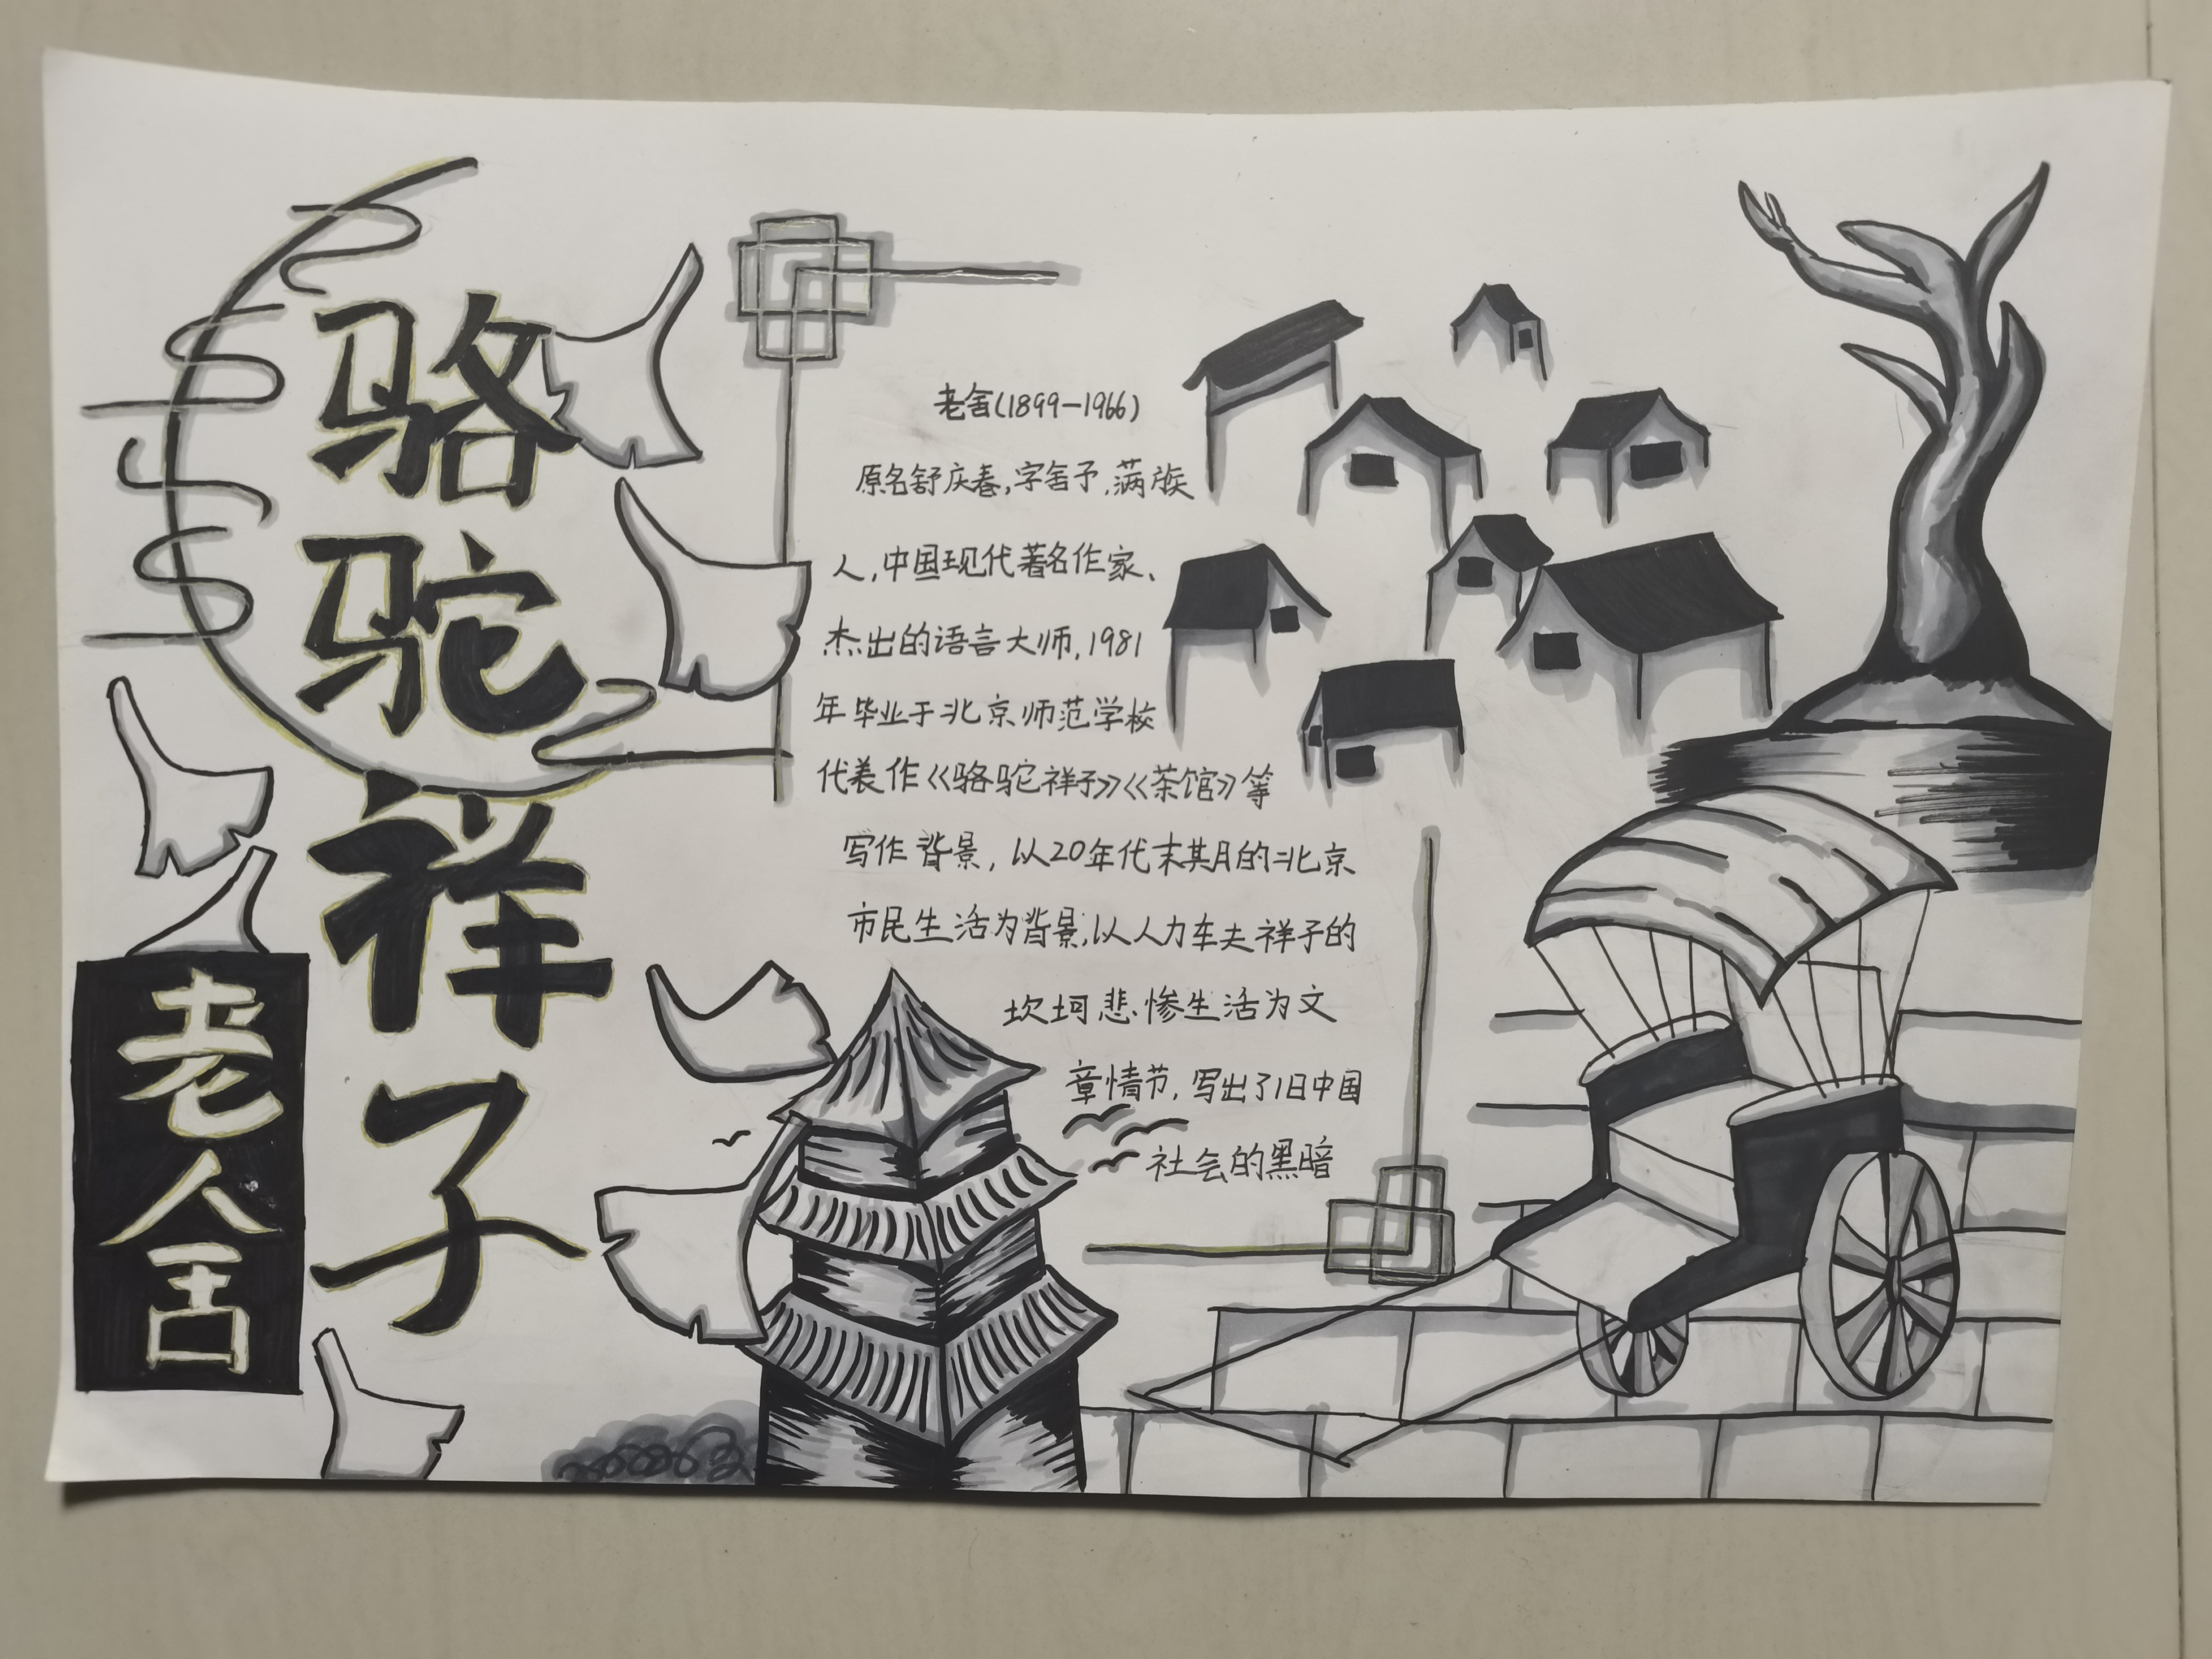 骆驼祥子
老舍
老舍(1899—1966)
原名舒庆春,字舍予,满族
人,中国现代著名作家、
杰出的语言大师,1981
年毕业于北京师范学校
代表作《骆驼祥子》《茶馆》等
写作背景,以20年代末期的北京
市民生活为背景,以人力车夫祥子的
坎坷悲惨生活为文
章情节,写出了旧中国
社会的黑暗